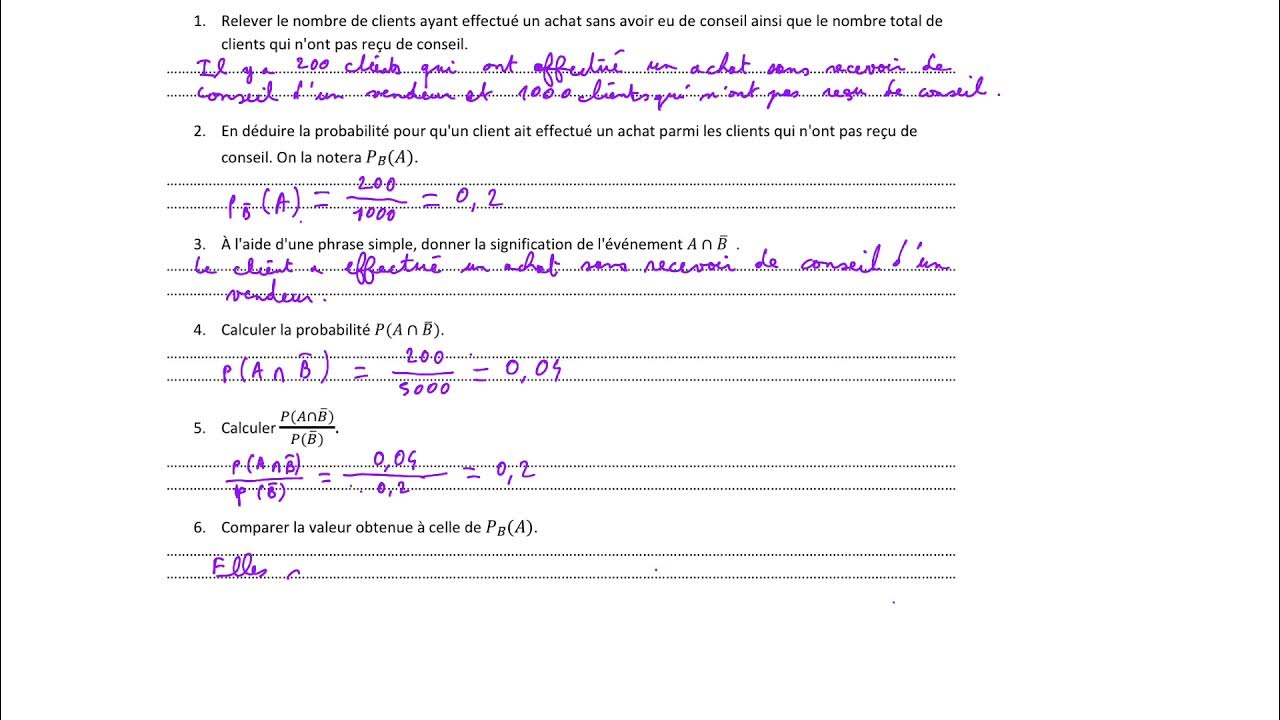 1. Relever le nombre de clients ayant effectué un achat sans avoir eu de conseil ainsi que le nombre total de
clients qui n'ont pas reçu de conseil.
Il y a 200 clients qui ont effectué un achat sans recevoir de
conseil d'un vendeur et 1000 clients qui n'ont pas reçu de conseil.
2. En déduire la probabilité pour qu'un client ait effectué un achat parmi les clients qui n'ont pas reçu de
conseil. On la notera P_B(A).
P_B̄(A) = 200/1000 = 0,2
3. À l'aide d'une phrase simple, donner la signification de l'événement A ∩ B̄ .
Le client a effectué un achat sans recevoir de conseil d'un
vendeur.
4. Calculer la probabilité P(A ∩ B̄).
P(A ∩ B̄) = 200/5000 = 0,04
5. Calculer P(A∩B̄)/P(B̄).
P(A∩B̄)/P(B̄) = 0,04/0,2 = 0,2
6. Comparer la valeur obtenue à celle de P_B(A).
Elles